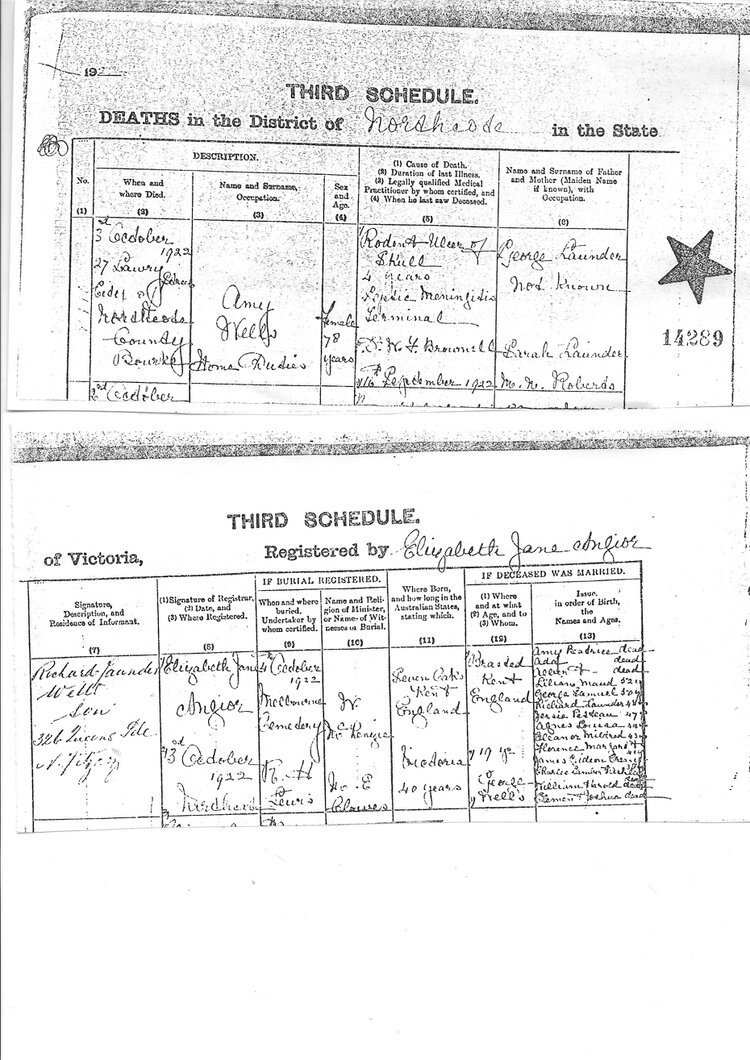 19
THIRD SCHEDULE.
DEATHS in the District of Northcote in the State
DESCRIPTION.
No.
(1)
When and
where Died.
(2)
Name and Surname,
Occupation.
(3)
Sex
and
Age.
(4)
(1) Cause of Death.
(2) Duration of last Illness.
(3) Legally qualified Medical
Practitioner by whom certified, and
(4) When he last saw Deceased.
(5)
Name and Surname of Father
and Mother (Maiden Name
if known), with
Occupation.
(6)
3rd October
1922
27 Lawry
Street
City of
Northcote
County
Bourke
Amy
Wells
Home Duties
Female
78
years
Rodent Ulcer of
Skull
4 years
Septic Meningitis
Terminal
Brownell
16th September 1922
George Launder
Not Known
Sarah Launder
M. N. Roberts
2nd October
14289
THIRD SCHEDULE.
of Victoria, Registered by Elizabeth Jane Angior
Signature,
Description, and
Residence of Informant.
(7)
(1) Signature of Registrar,
(2) Date, and
(3) Where Registered.
(8)
IF BURIAL REGISTERED.
When and where
buried.
Undertaker by
whom certified.
(9)
Name and Reli-
gion of Minister,
or Names of Wit-
nesses of Burial.
(10)
Where Born,
and how long in the
Australian States,
stating which.
(11)
IF DECEASED WAS MARRIED.
(1) Where
and at what
(2) Age, and to
(3) Whom.
(12)
Issue,
in order of Birth,
the
Names and Ages.
(13)
Richard Launder
Wells
Son
326 Queens Pde
N. Fitzroy
Elizabeth Jane
Angior
3rd October
1922
Northcote
4th October
1922
Melbourne
Cemetery
R. H
Lewis
W.
McKenzie
W. E
Clowes
Seven Oaks
Kent
England
Victoria
40 years
Brasted
Kent
England
19 yrs
George
Wells
Amy Beatrice dead
Ada dead
dead
Lilian Maud 52
George Samuel 50
Richard Launder 48
Jessie 47
Agnes Louisa
Eleanor Mildred
Florence Margaret
James Gideon
Charles
William Harold dead
Clement Joshua dead